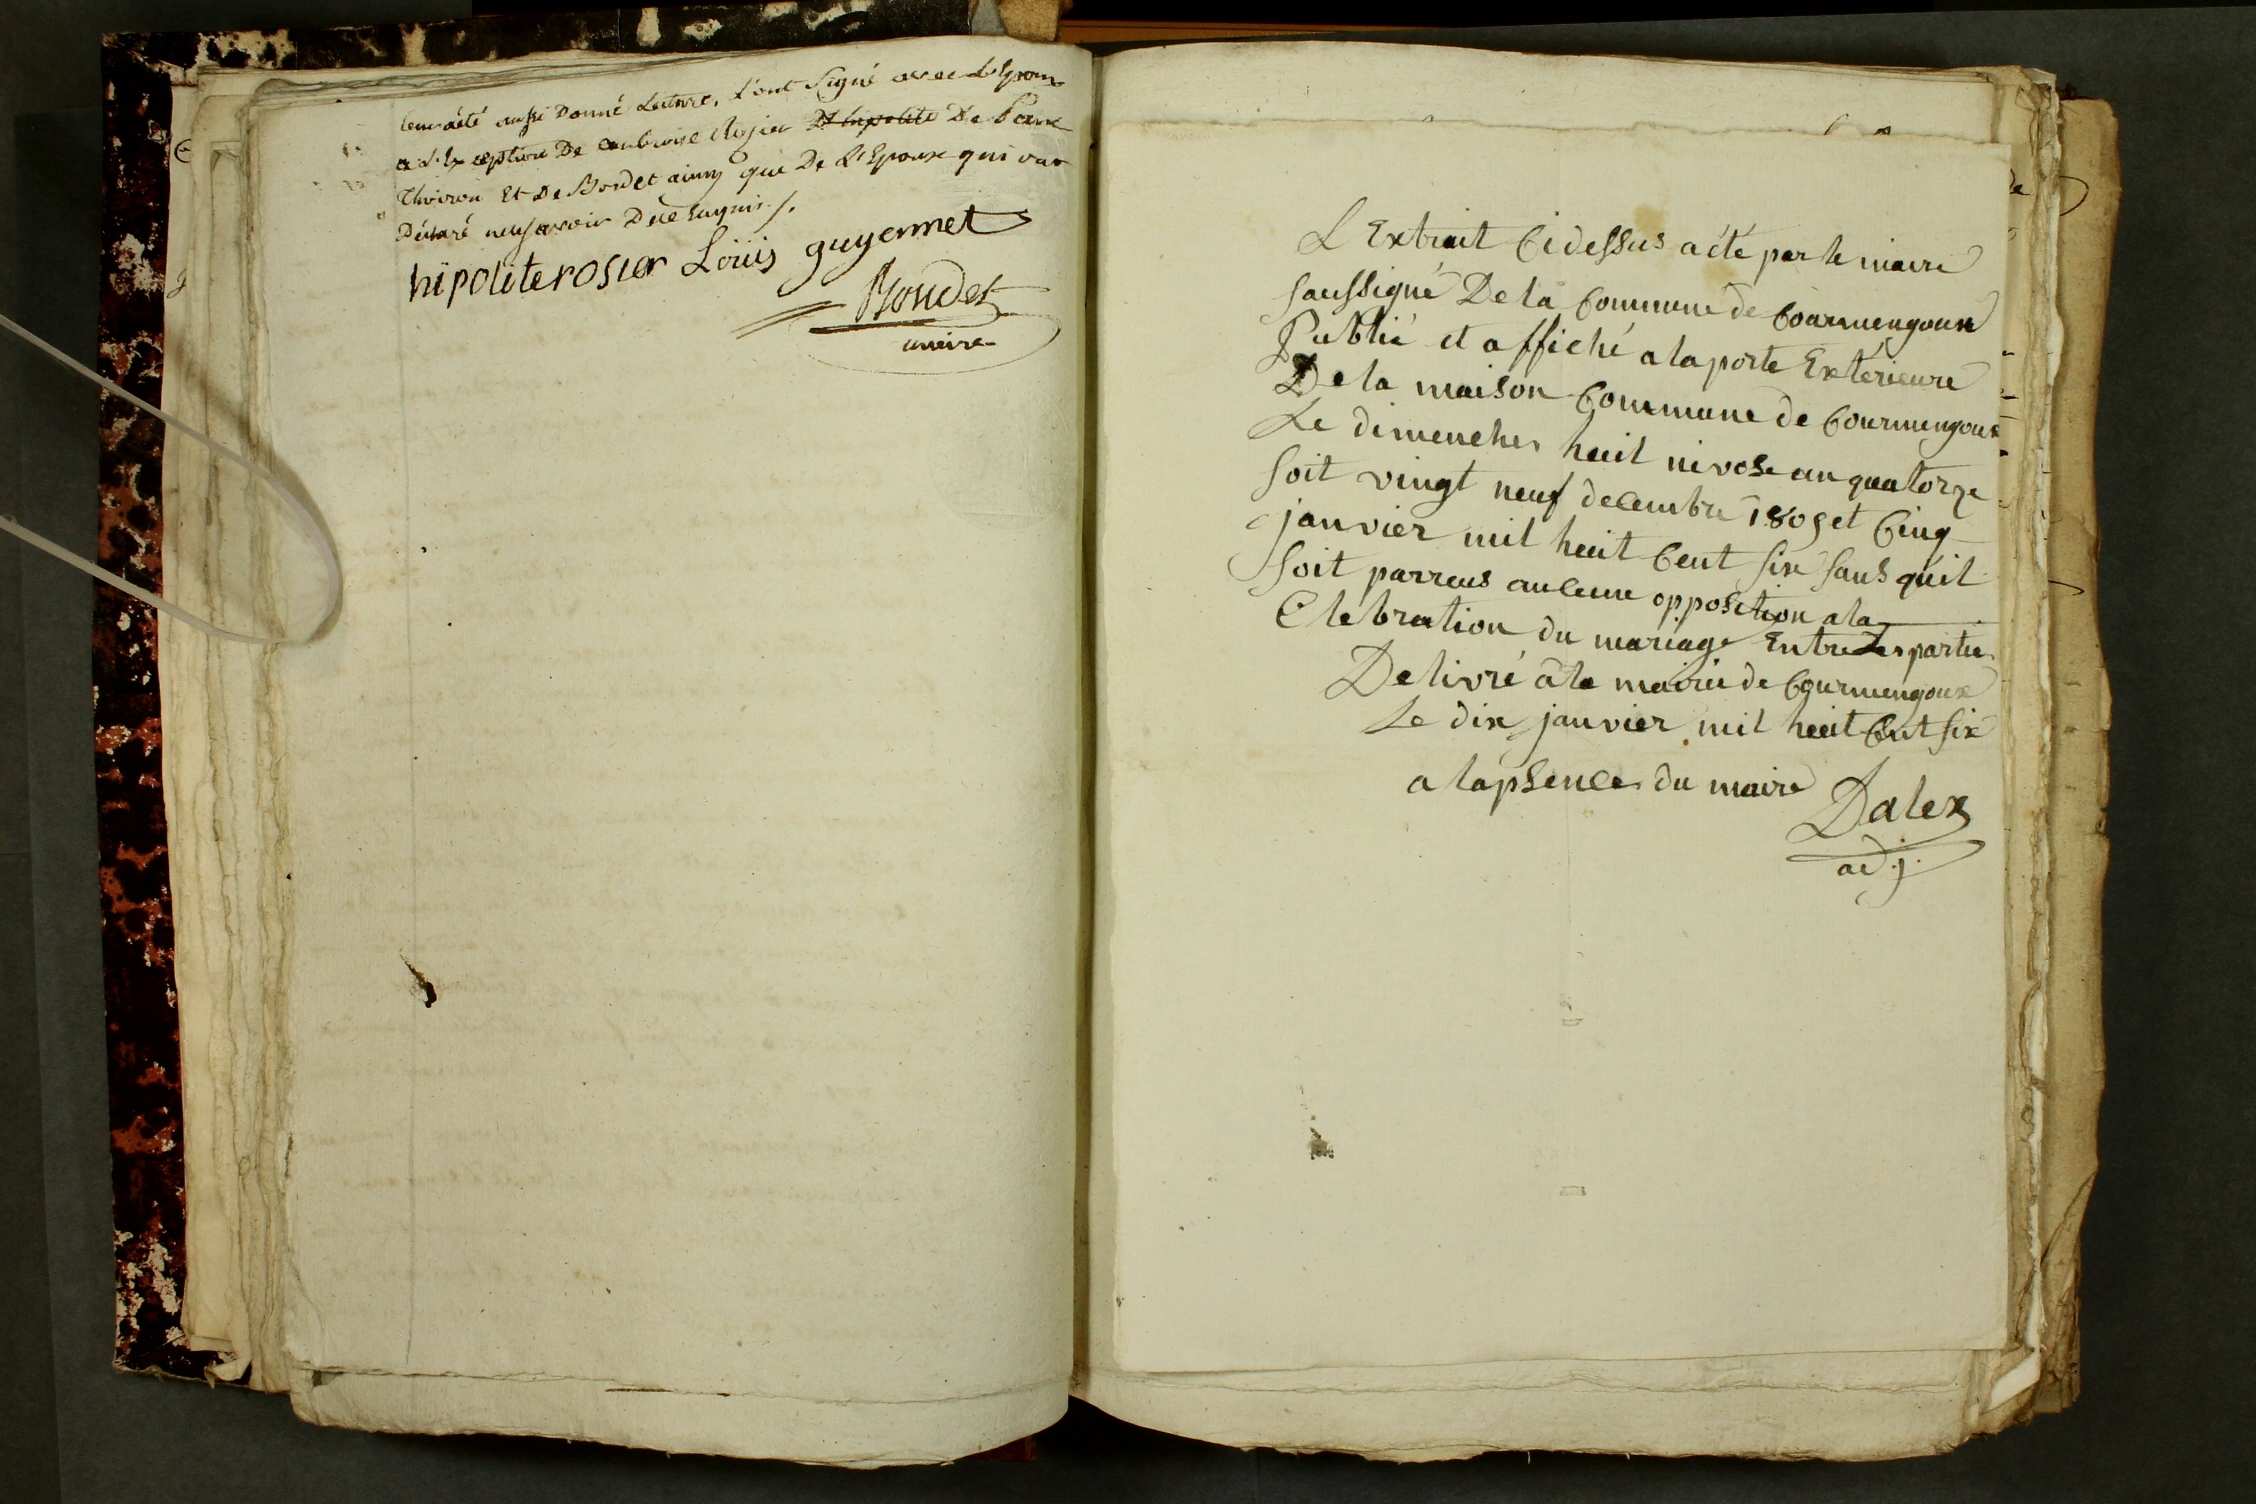 leur aété aussi Donné Lecture, L'ont Signé avec L'Epoux
a L'Exception De ambroise Rosier D'hipolite De Pierre
Thoiron Et De Bondet ainsy que De L'Epouse qui ont
Déclaré ne Savoir De ce Enquis /.
hipolite rosier Loüis guyennet
Bondet
maire
L Extrait Cidessus a été par le maire
Soussigné De la Commune de Courmengoux
Publié et affiché a la porte Extérieure
De la maison Commune de Courmengoux
Le dimenche huit nivose an quatorze
Soit vingt neuf décembre 1805 et Cinq
janvier mil huit Cent Six Sans quil
Soit parvenus aucune opposition a la
Célebration du mariage Entre Les parties
Delivré a la mairie de Courmengoux
Le dix janvier mil huit Cent Six
a lapsence du maire
Dalex
adj.